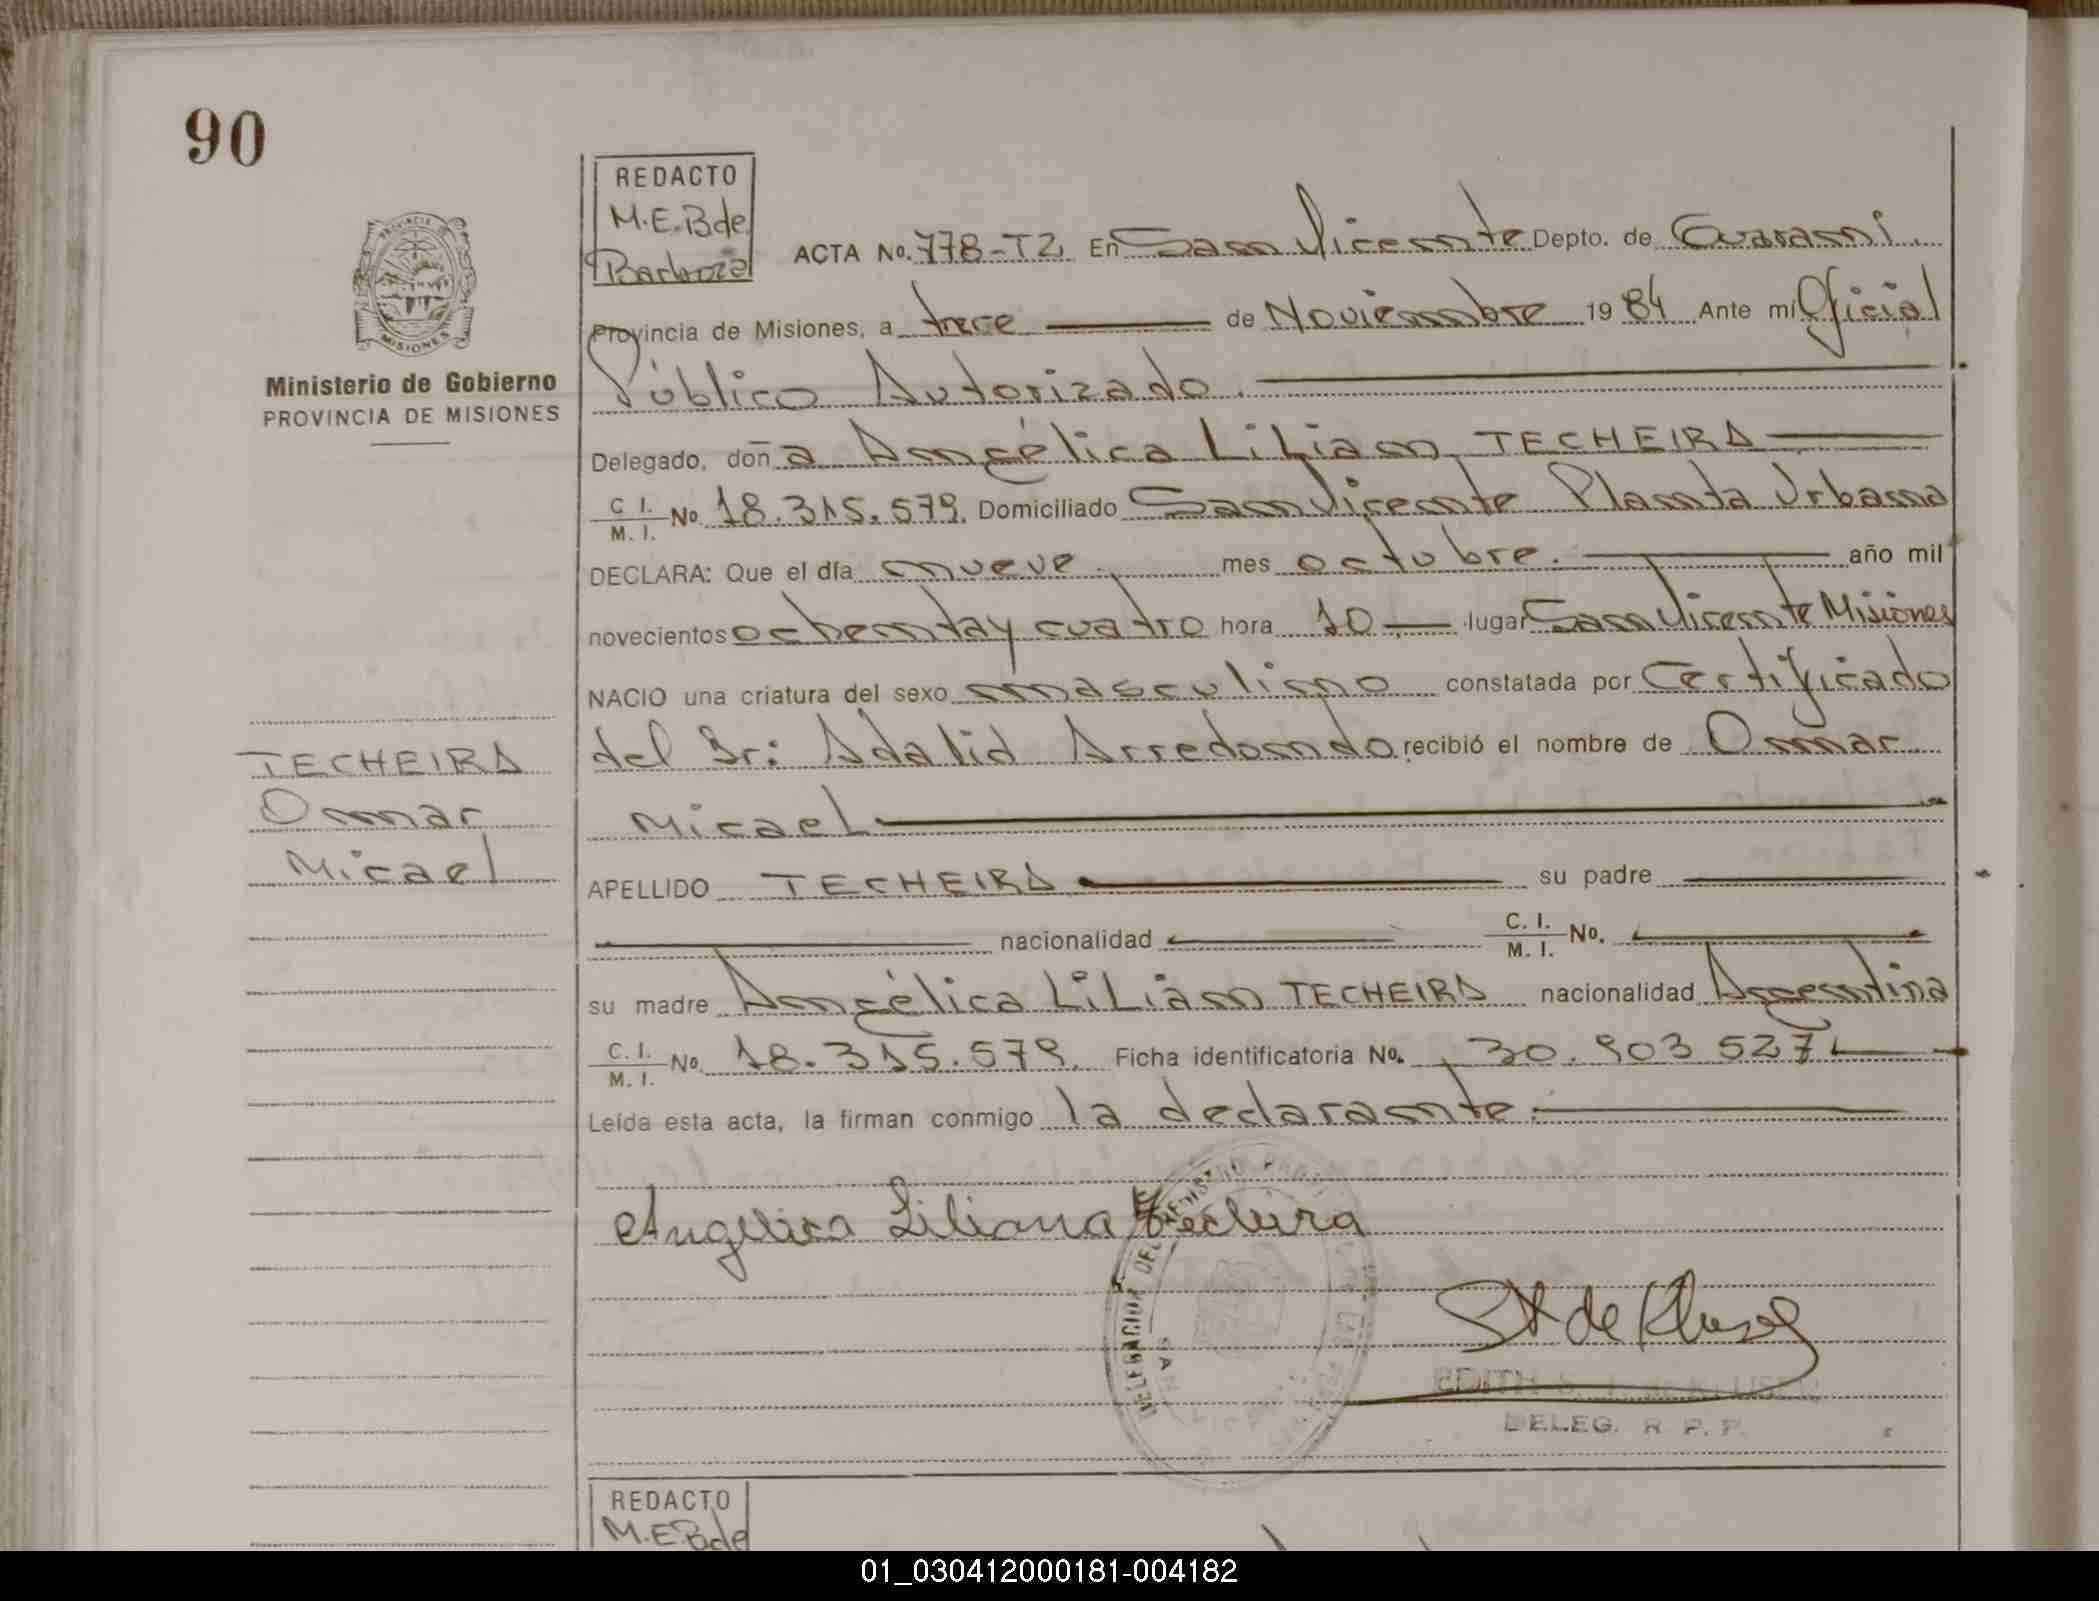 90
REDACTO
M.E.B de
Barboza
ACTA No. 778-T2 En San Vicente Depto. de Guaraní
Provincia de Misiones, a trece de Noviembre 1984 Ante mi Oficial
Público Autorizado.
PROVINCIA
MISIONES
Ministerio de Gobierno
PROVINCIA DE MISIONES
Delegado, doña Angélica LiLian TECHEIRA
C I. M. I. No. 18.315.579. Domiciliado San Vicente Planta Urbana
DECLARA: Que el día nueve. mes octubre. año mil
novecientos ochentay cuatro hora 10 lugar San Vicente Misiones
NACIO una criatura del sexo masculino constatada por Certificado
del Sr: Adalid Arredondo, recibió el nombre de Omar
Micael
TECHEIRA
Omar
Micael
APELLIDO TECHEIRA su padre
nacionalidad C. I. M. I. No.
su madre Angélica LiLian TECHEIRA nacionalidad Argentina
C. I. M. I. No. 18.315.579. Ficha identificatoria No. 30.903 527
Leída esta acta, la firman conmigo la declarante.
Angelica Liliana Techeira
DELEGACION DEL
EDITH
DELEG. R. P. P.
REDACTO
M.E.B de
01_030412000181-004182